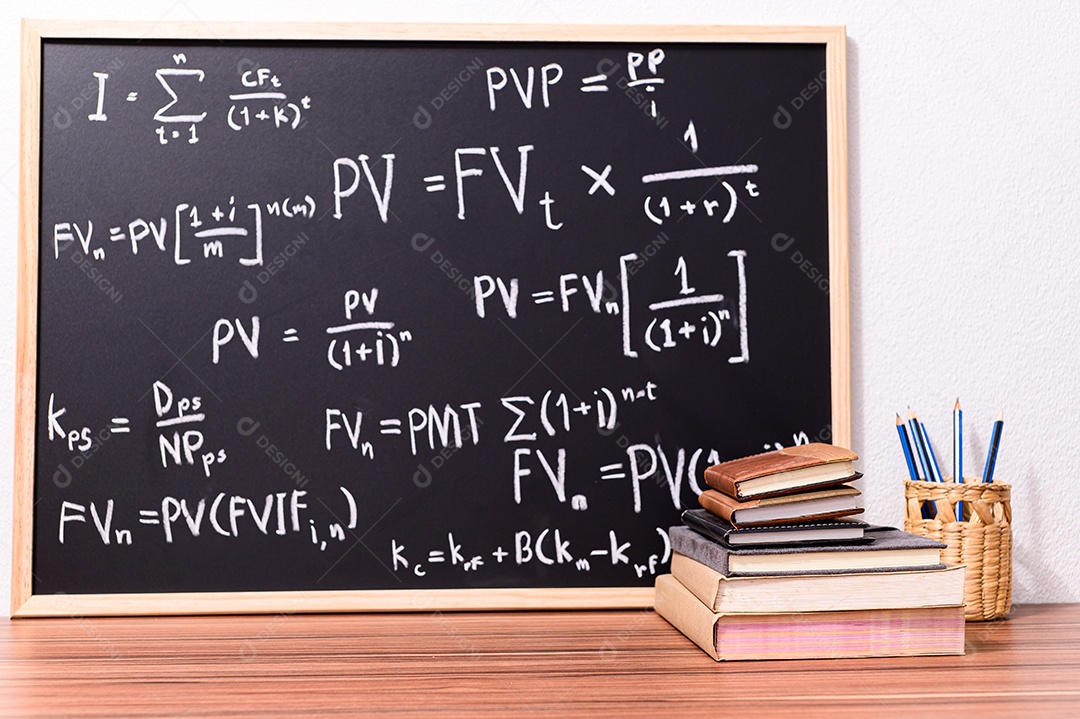 I = n∑t=1 CFt/(1+k)^t
PVP = PP/i
PV = FVt × 1/(1+r)^t
FVn = PV[1+i/m]^n(m)
PV = FVn[1/(1+i)^n]
PV = PV/(1+i)^n
kPS = DPS/NPPS
FVn = PMT ∑(1+i)^n-t
FVn = PV(
FVn = PV(FVIFi,n)
kc = kRF + B(km - kRF)
DESIGNI